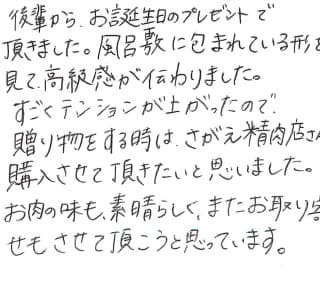 後輩から、お誕生日のプレゼントで
頂きました。風呂敷に包まれている形を
見て、高級感が伝わりました。
すごくテンションが上がったので、
贈り物をする時は、さがえ精肉店さん
購入させて頂きたいと思いました。
お肉の味も、素晴らしく、またお取り寄
せもさせて頂こうと思っています。